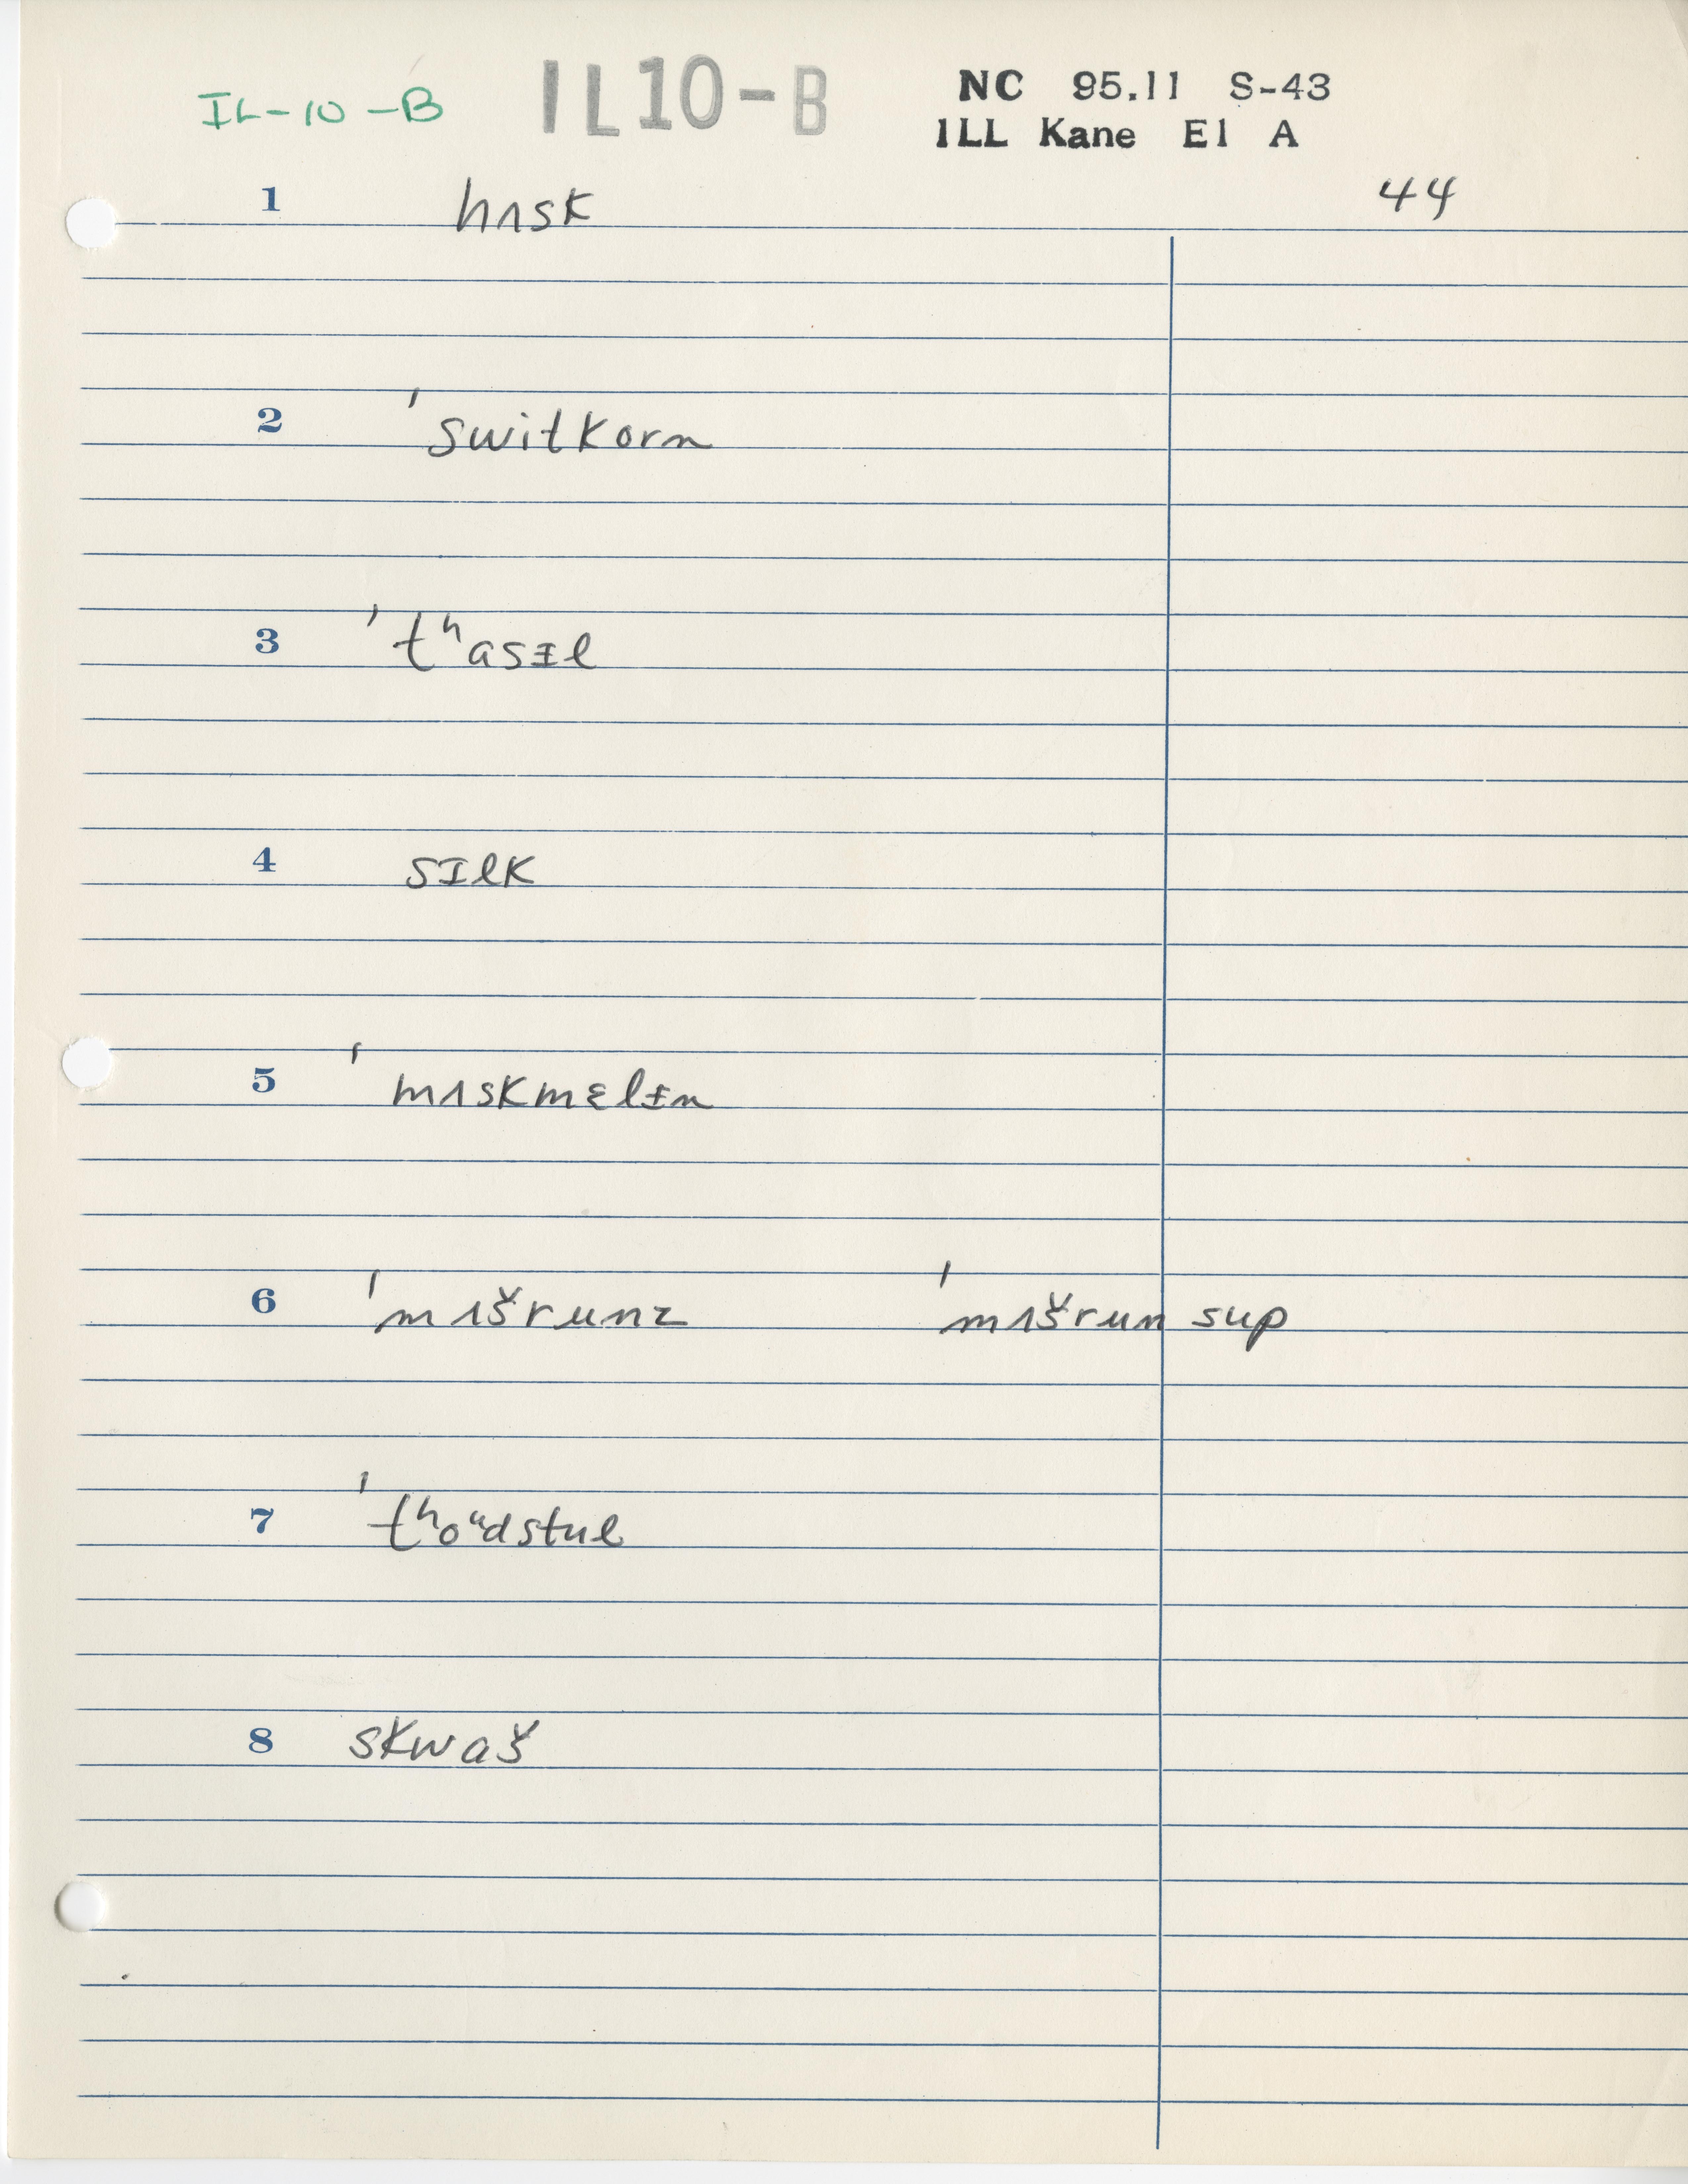 IL-10-B IL10-B NC 95.11 S-43
ILL Kane El A
44
1 hʌsk
2 ˈswitkorn
3 ˈtʰasɨl
4 sɪlk
5 ˈmʌskmɛlɨn
6 ˈmʌšrunz ˈmʌšrun sup
7 ˈtʰoᵘdstul
8 skwaš